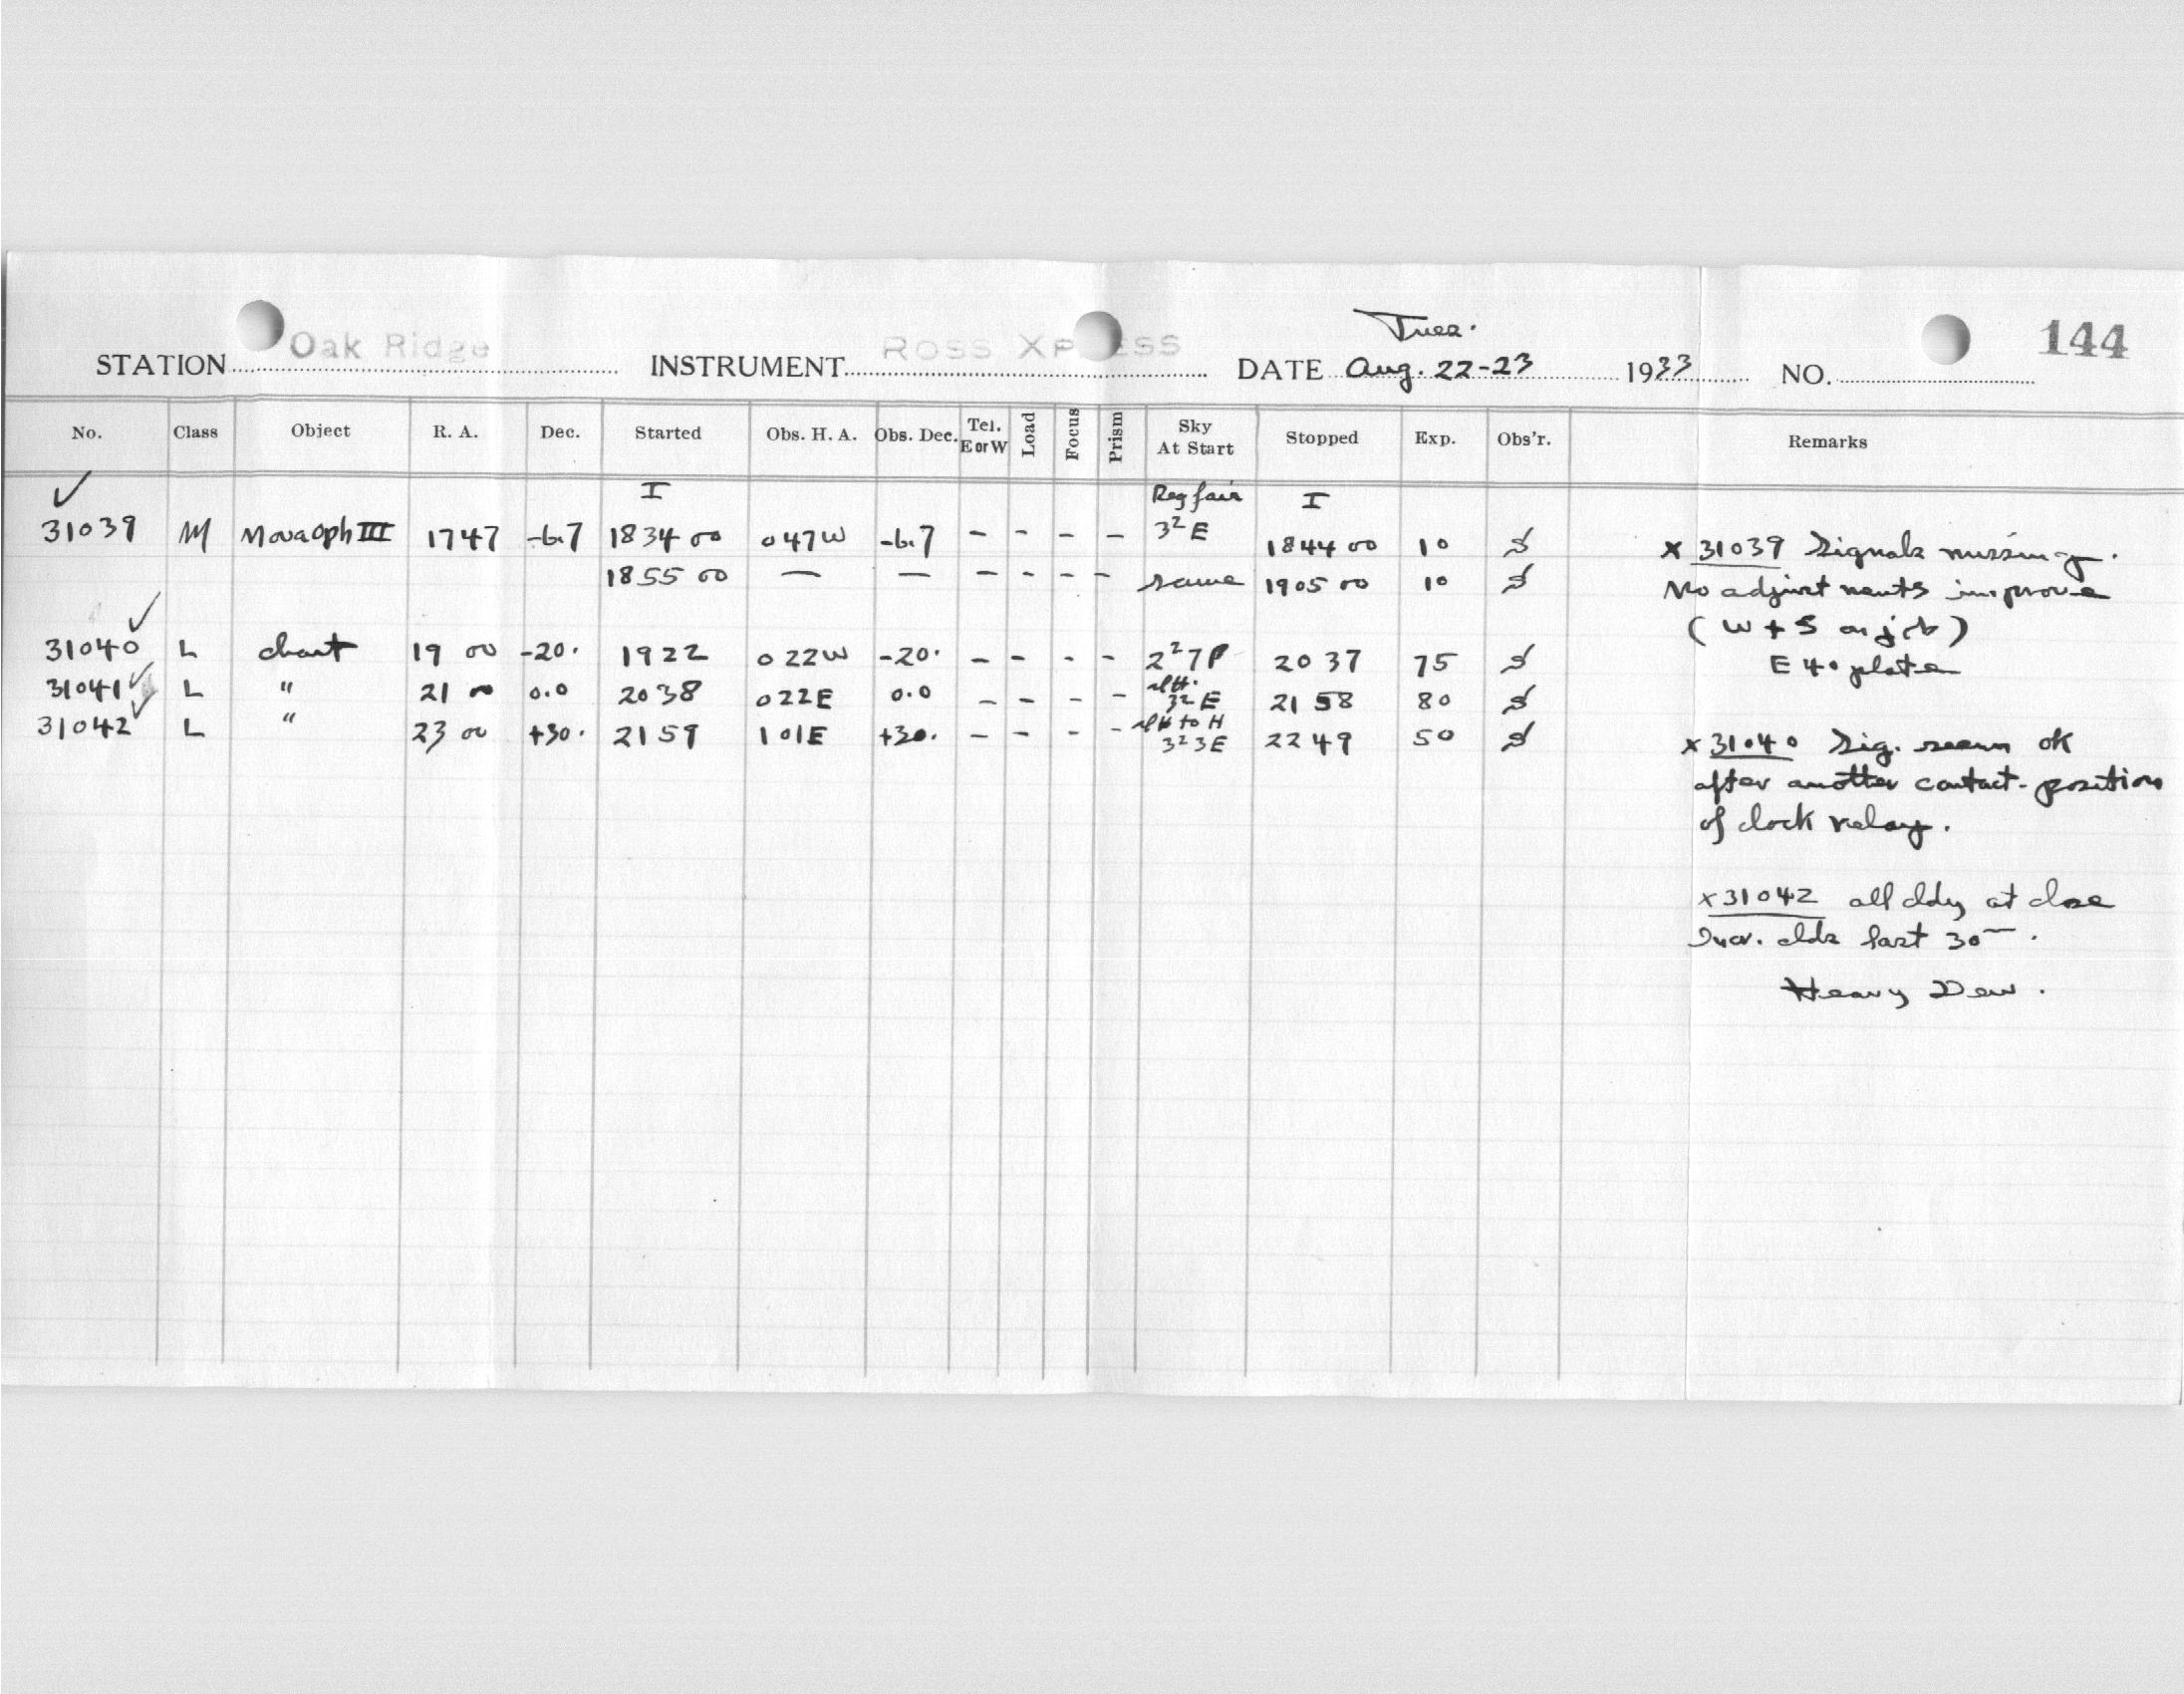 Tues.
STATION Oak Ridge INSTRUMENT Ross Xpress DATE Aug. 22-23 1933 NO. 144
No. Class Object R. A. Dec. Started Obs. H. A. Obs. Dec. Tel. E or W Load Focus Prism Sky At Start Stopped Exp. Obs'r. Remarks
✓ I Reg fair I
31039 M Nova Oph III 1747 -6.7 1834 00 047W -6.7 - - - - 3² E 1844 00 10 S
1855 00 — — - - - - same 1905 00 10 S
✓ 31040 L chart 19 00 -20. 1922 022W -20. - - - - 2² 7P 2037 75 S
✓ 31041 L " 21 00 0.0 2038 022E 0.0 - - - - 3² E 2158 80 S
✓ 31042 L " 23 00 +30. 2159 101E +30. - - - - to H 3² 3E 2249 50 S
x 31039 Signals missing.
No adjustments improve
(W + S on job)
E 40 plate
x 31040 Sig. seem OK
after another contact-position
of clock relay.
x 31042 all cldy at close
Incr. clds last 30ᵐ.
Heavy Dew.